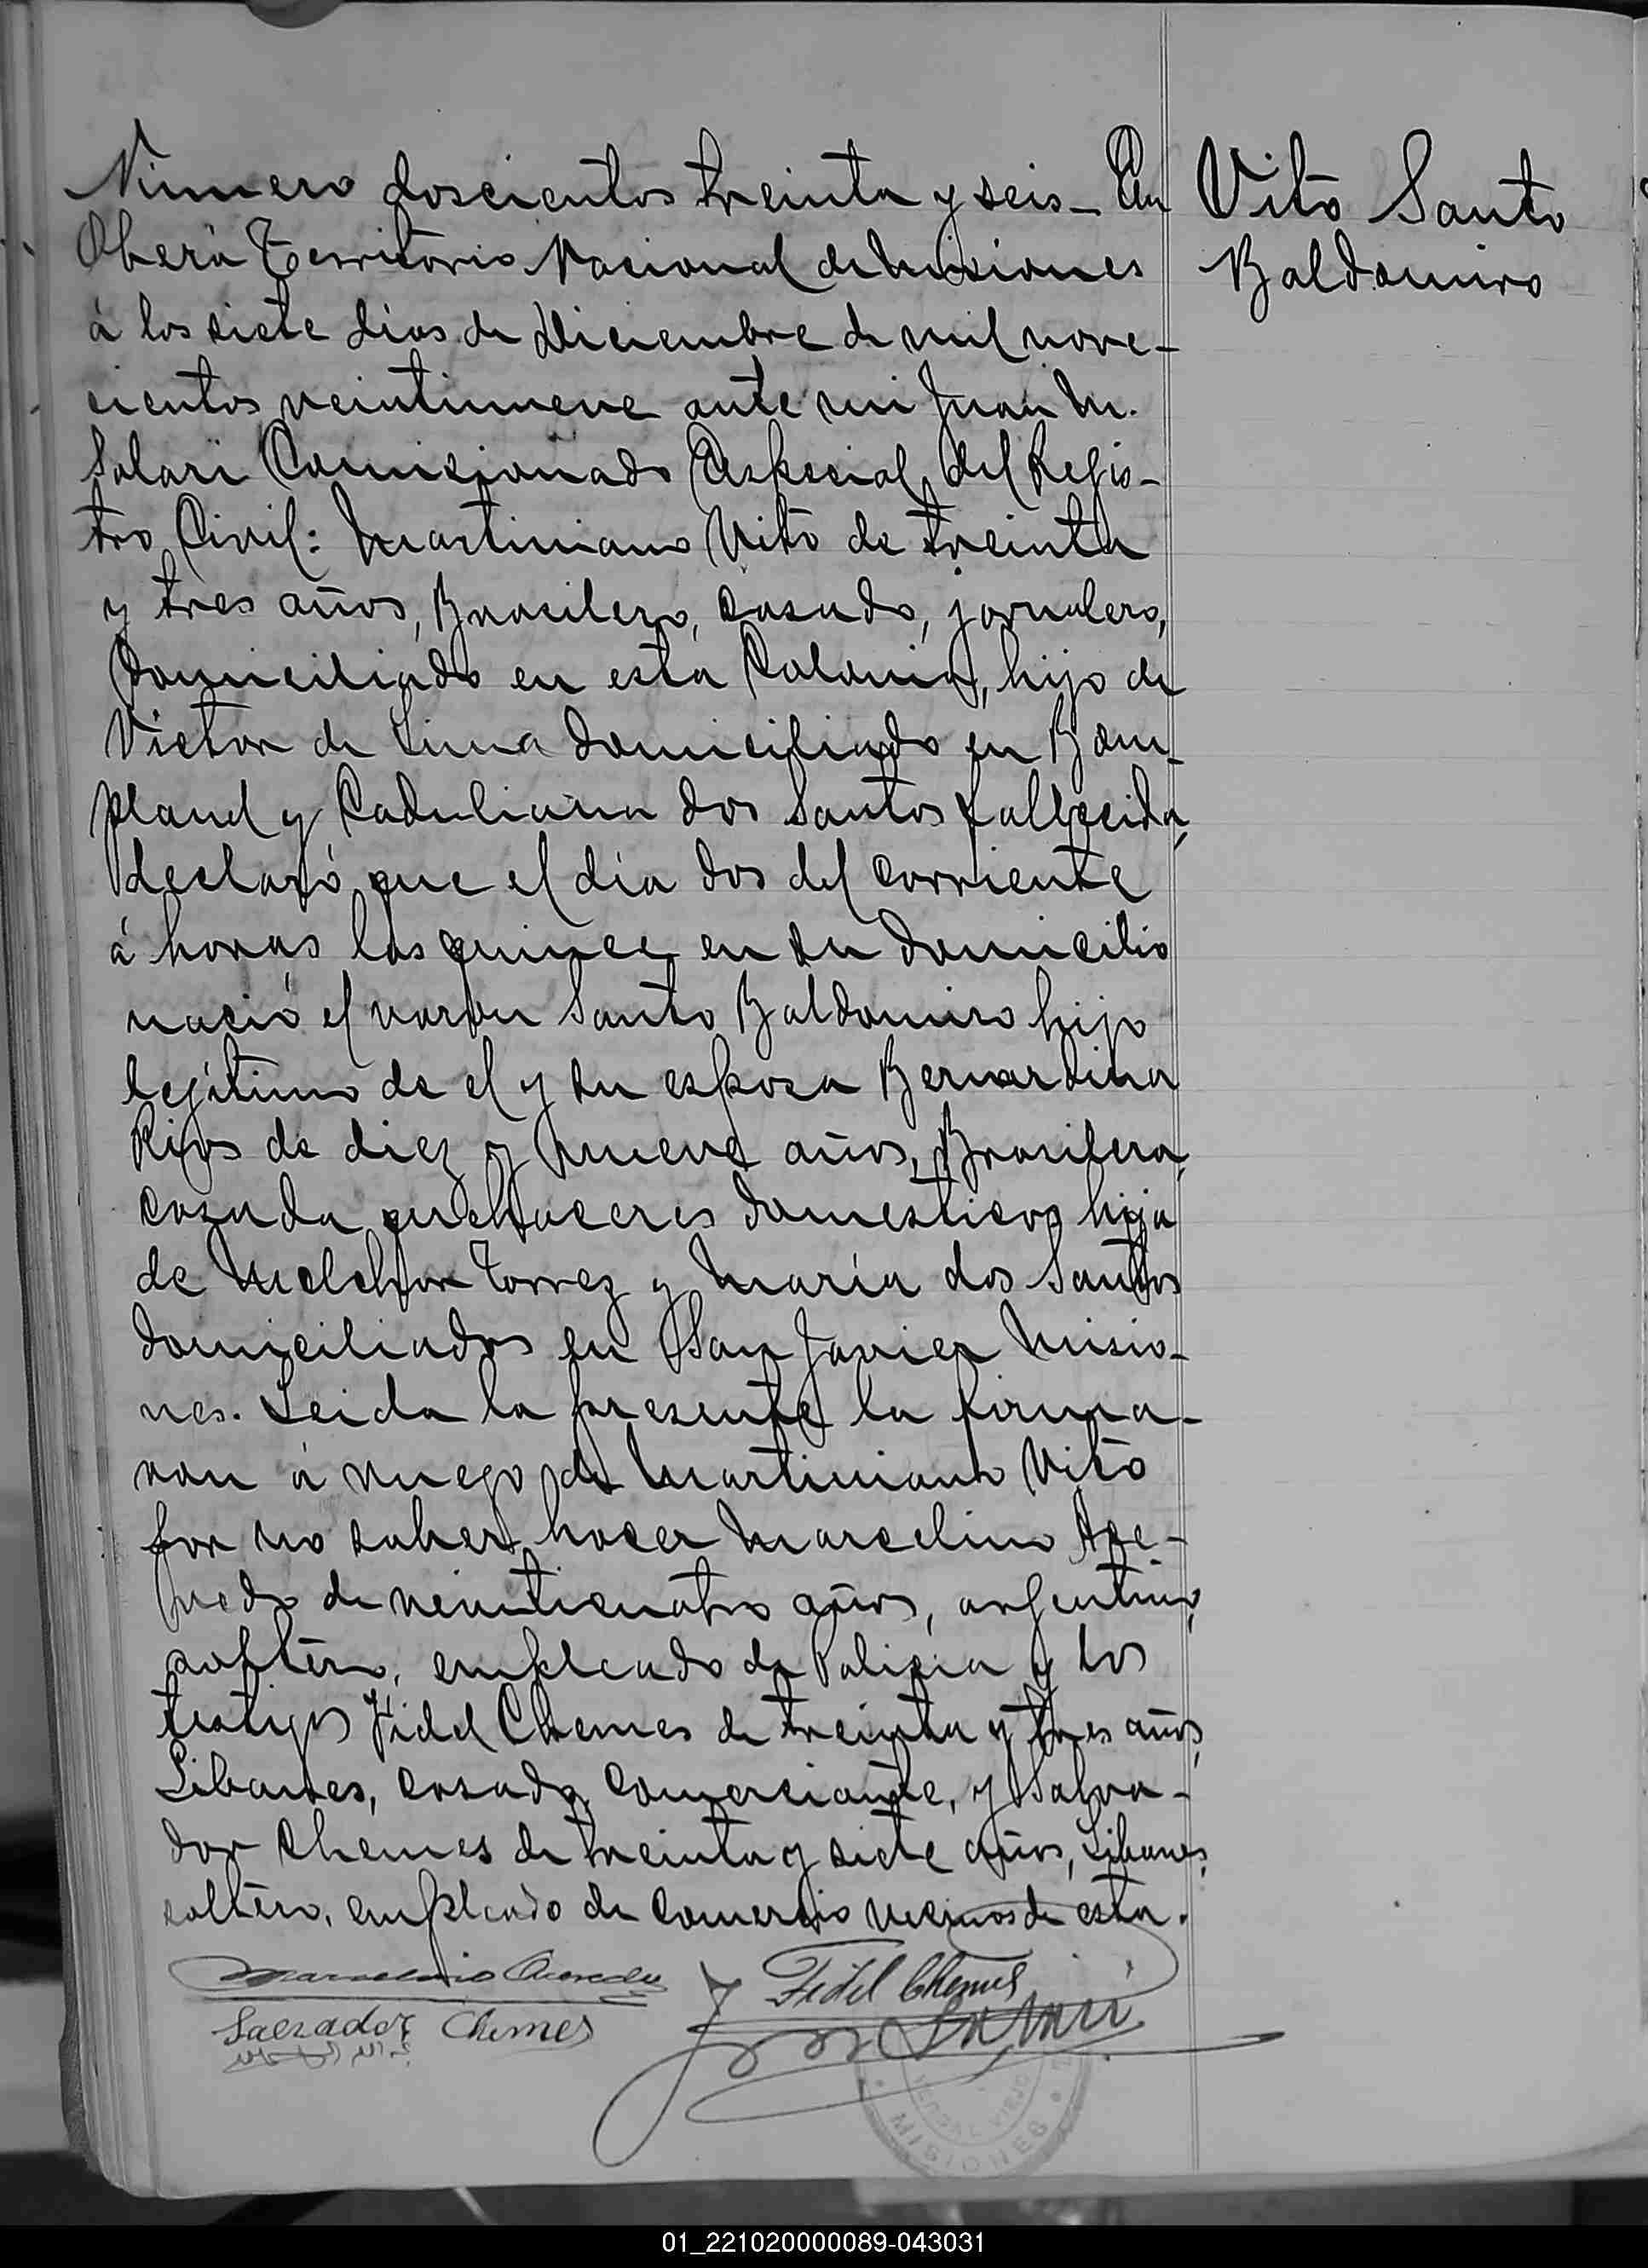 Número doscientos treinta y seis - En
Oberá Territorio Nacional de Misiones
á los siete dias de Diciembre de mil nove-
cientos veintinueve ante mi Juan M.
Salari Comicionado Especial del Regis-
tro Civil: Martiniano Vito de treinta
y tres años, Brasilero, casado, jornalero,
domiciliado en esta Colonia, hijo de
Victor de Lima domiciliado en Bom-
pland y Caduliana dos Santos fallecida,
declaró que el dia dos del corriente
á horas las quince en su domicilio
nació el varon Santo Baldomiro hijo
legitimo de el y su esposa Bernardina
Rios de diez y nueve años, Brasilera,
casada quehaceres domesticos hija
de Melchor Torrez y Maria dos Santos
domiciliados en San Javier Misio-
nes. Leida la presente la firma-
ron á ruego de Martiniano Vito
por no saber hacer Marcelino Ace-
vedo de veinticuatro años, argentino,
soltero, empleado de Policia y los
testigos Fidel Chemes de treinta y tres años,
Libanes, casado, comerciante, y Salva-
dor Chemes de treinta y siete años, Libanes,
soltero, empleado de comercio vecinos de esta.
Vito Santo
Baldomiro
Marcelino Acevedo
Fidel Chemes
Salvador Chemes
Salari
MISIONES
01_221020000089-043031